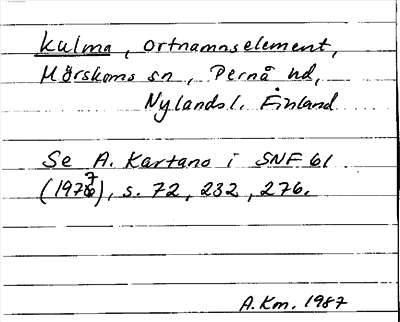 kulma, ortnamnselement,
Mörskoms sn, Pernå hd,
Nylands l. Finland
Se A. Kartano i SNF 61
(1977), s. 72, 232, 276.
A.Km. 1987